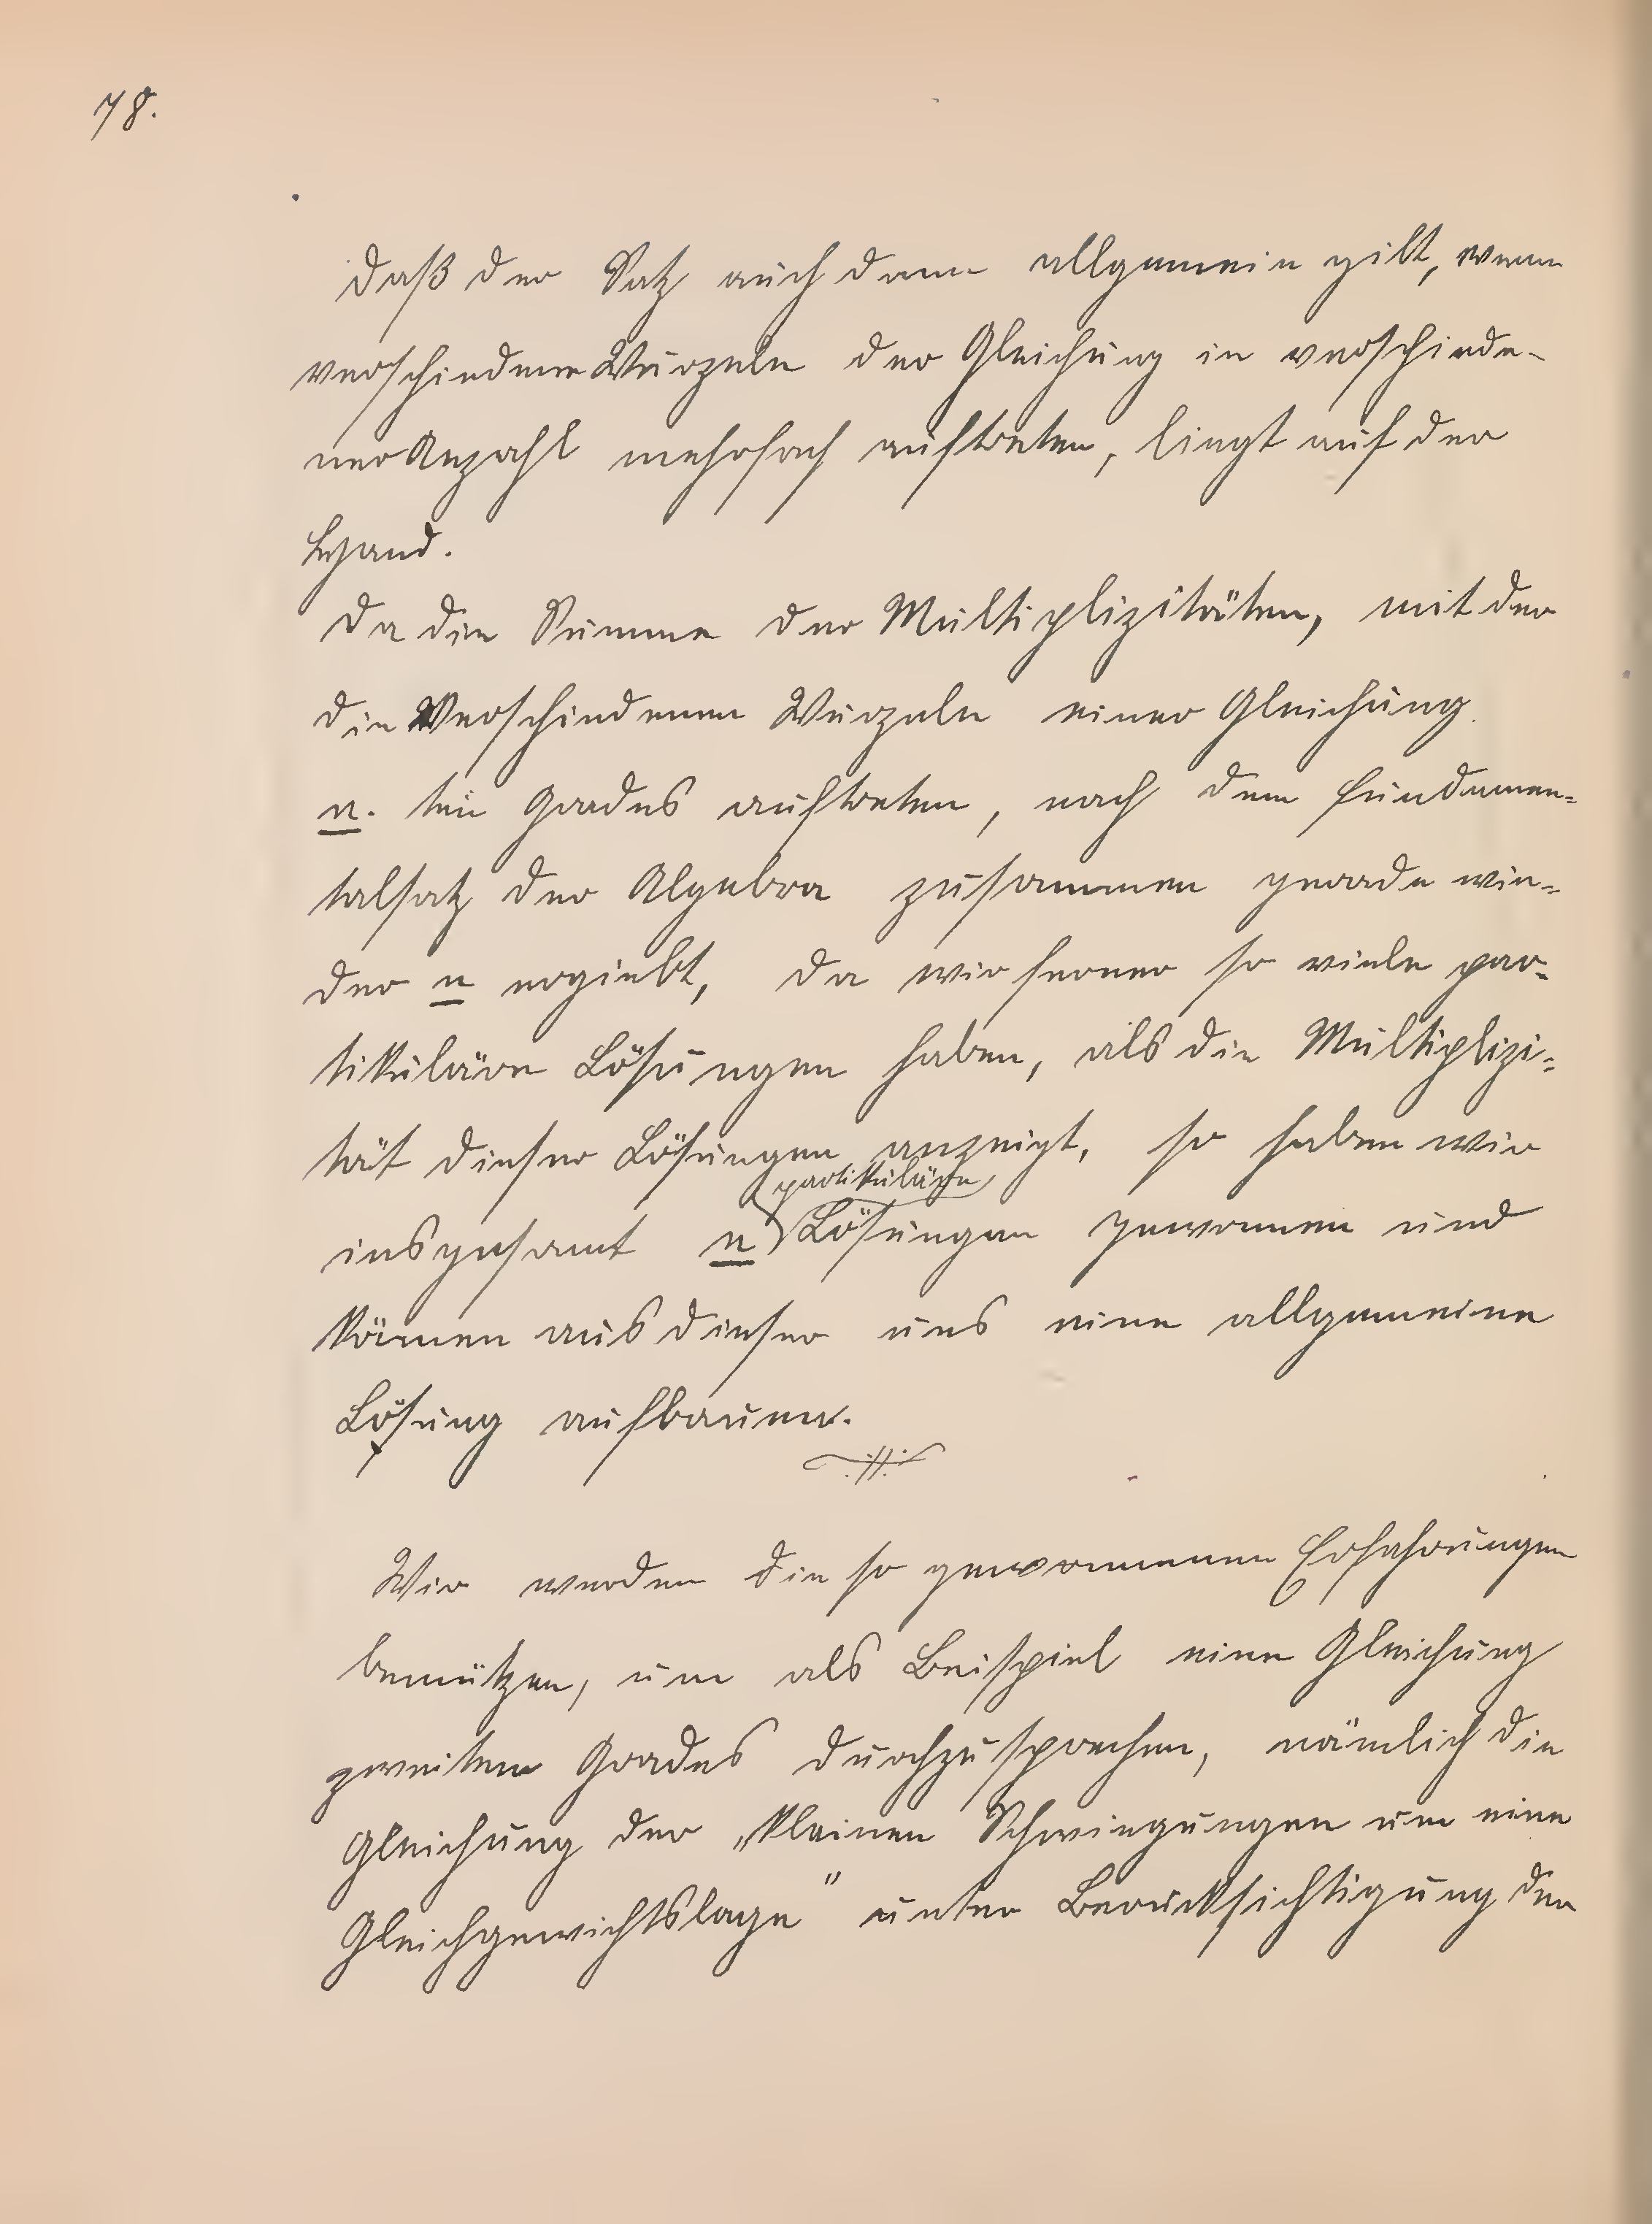 78.
Daß der Satz auch dann allgemein gilt, wenn
verschiedene Wurzeln der Gleichung in verschiede-
ner Anzahl mehrfach auftreten, liegt auf der
Hand.
Da die Summe der Multiplizitäten, mit der
die verschiedenen Wurzeln einer Gleichung
n. ten Grades auftreten, nach dem Fundamen-
talsatz der Algebra zusammen gerade wie-
der n ergiebt, da wir ferner so viele par-
tikuläre Lösungen haben, als die Multiplizi-
tät dieser Lösungen anzeigt, so haben wir
partikuläre
insgesamt n Lösungen gewonnen und
können aus dieser uns eine allgemeine
Lösung aufbauen.
Wir werden die so gewonnenen Erfahrungen
benützen, um als Beispiel eine Gleichung
zweiten Grades durchzusprechen, nämlich die
Gleichung der „kleinen Schwingungen um eine
Gleichgewichtslage" unter Berücksichtigung der